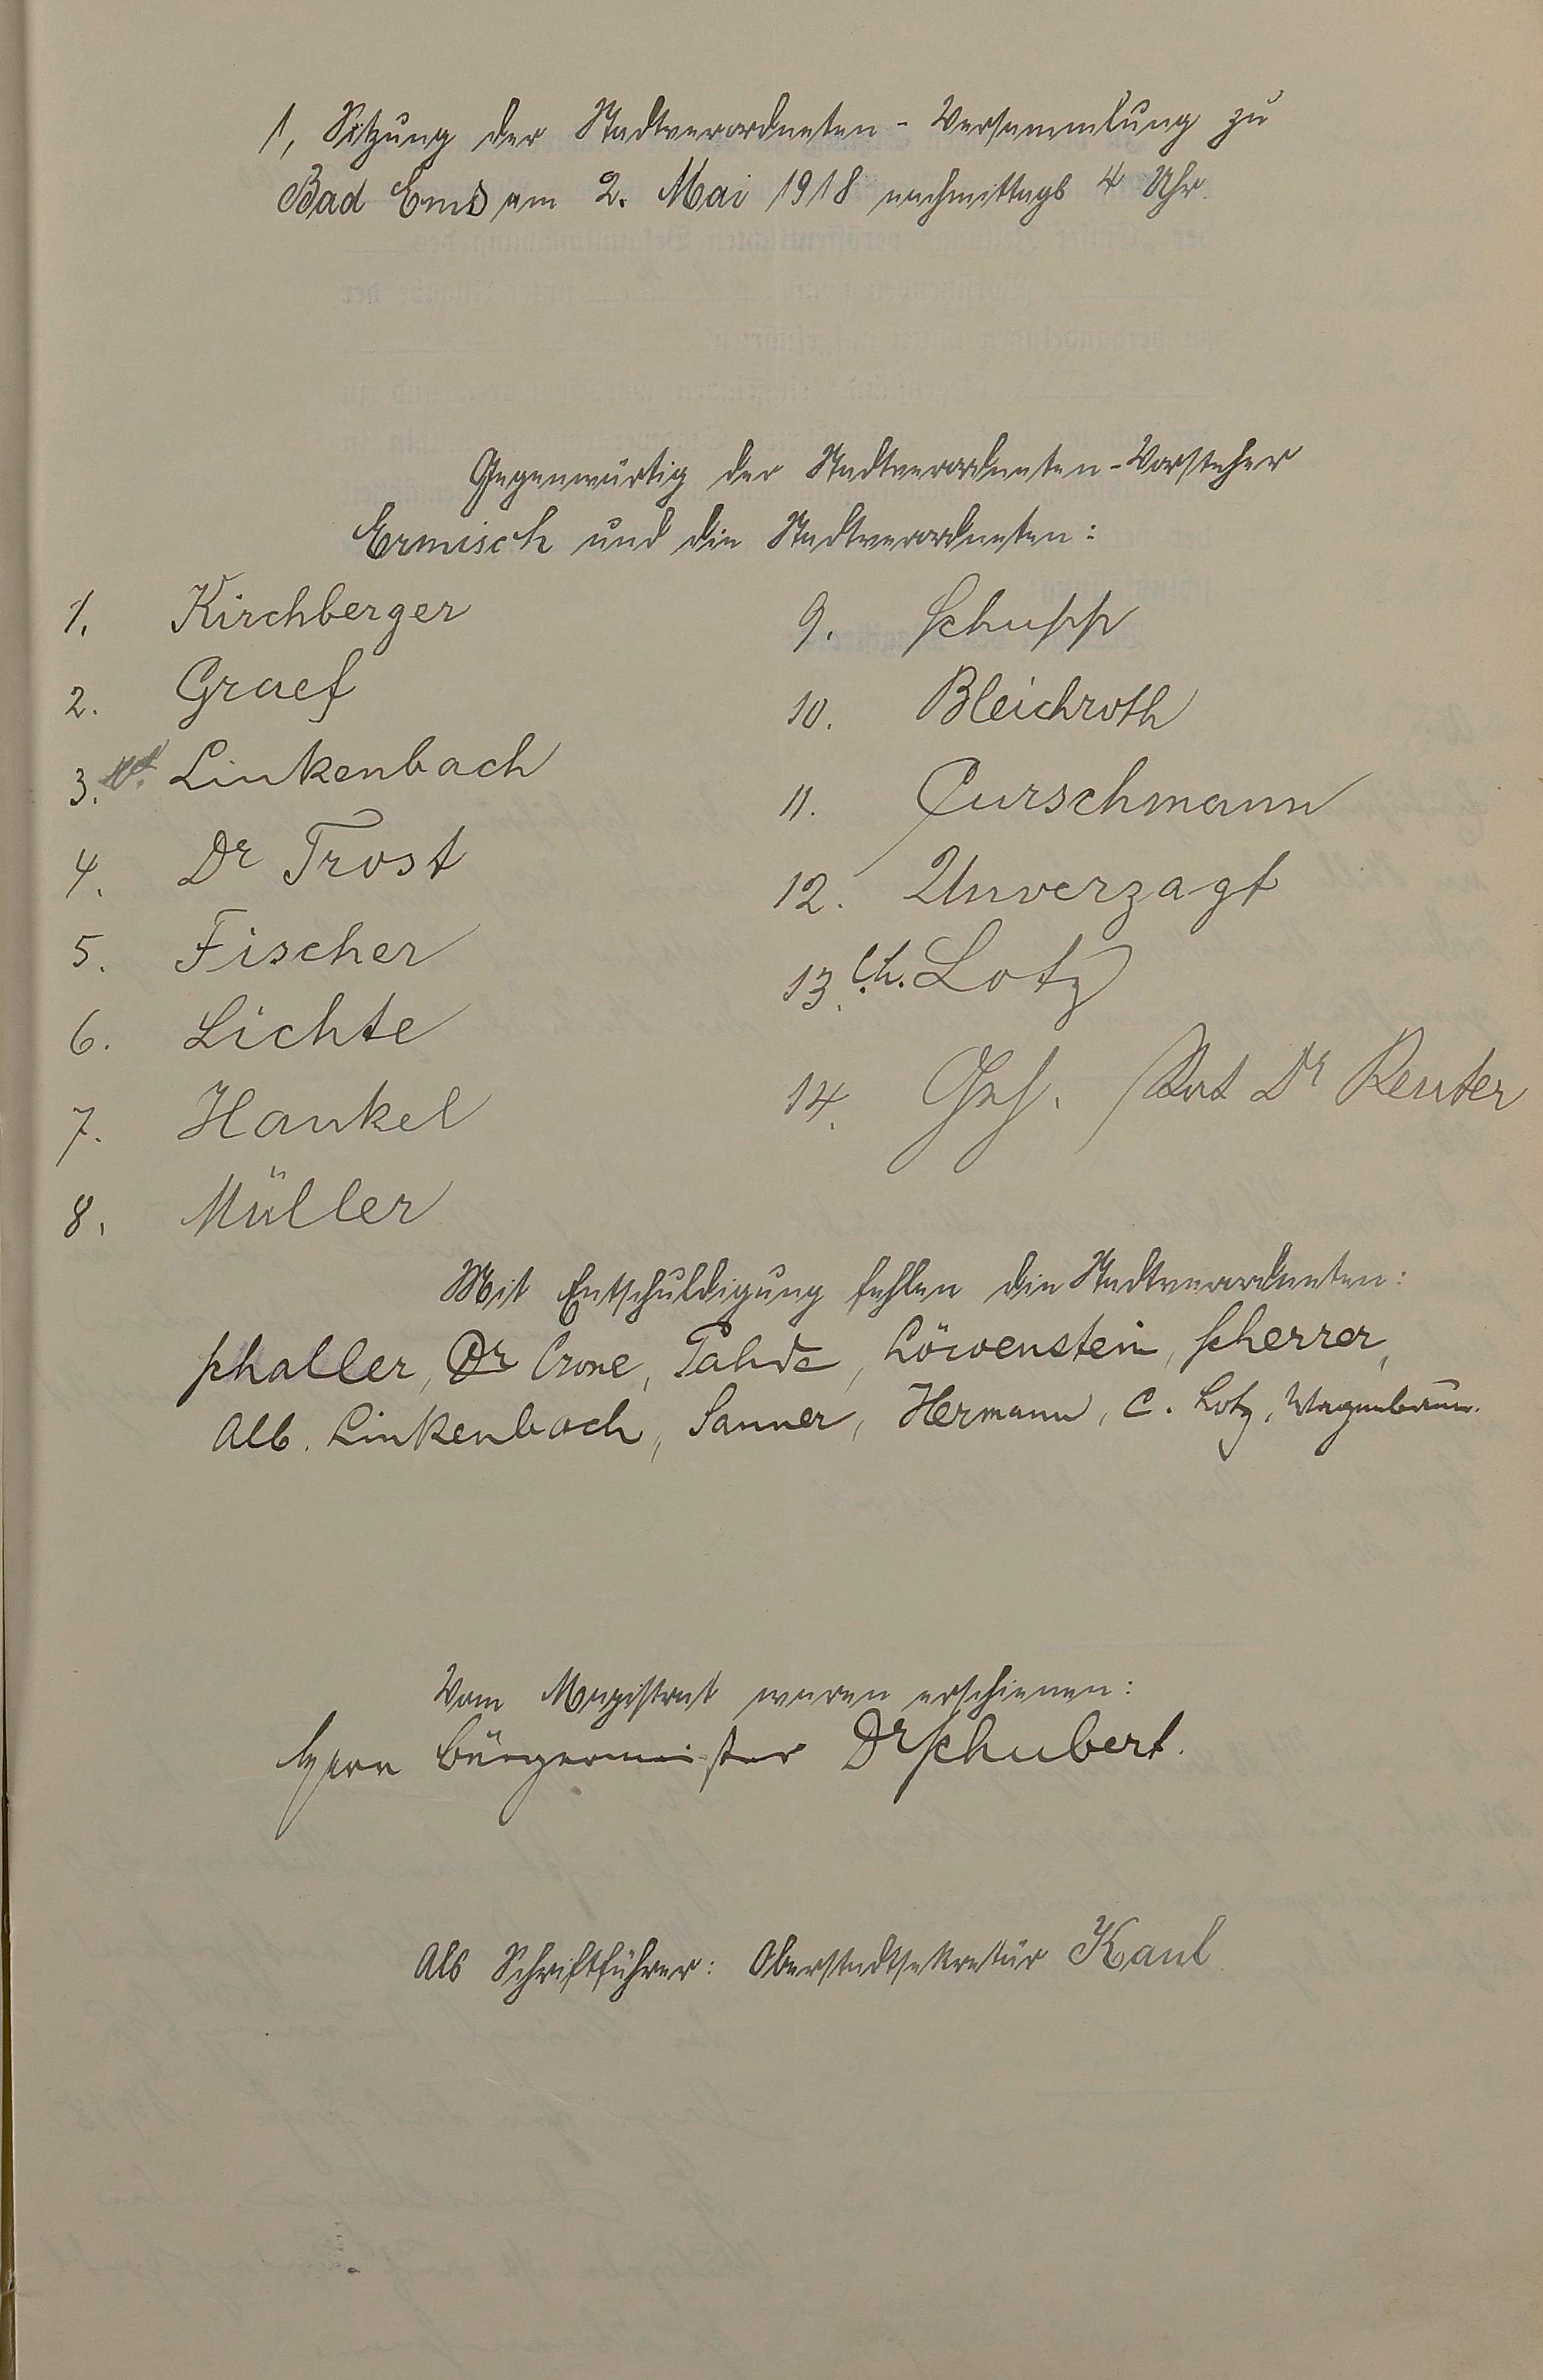 1, Sitzung der Stadtverordneten-Versammlung zu
Bad Ems am 2. Mai 1918 nachmittags 4 Uhr.
Gegenwärtig der Stadtverordneten-Vorsteher
Ermisch und die Stadtverordneten:
1. Kirchberger
2. Graef
3. Linkenbach
4. Dr Trost
5. Fischer
6. Lichte
7. Hankel
8. Müller
9. Schupp
10. Bleichroth
11. Curschmann
12. Unverzagt
13. Ch. Lotz
14. Geh. Rat Dr Reuter
Mit Entschuldigung fehlen die Stadtverordneten:
Schaller, Dr Crone, Pahde, Löwenstein, Scherrer,
Alb. Linkenbach, Sanner, Hermann, C. Lotz, Wagenbaur.
Vom Magistrat waren erschienen:
Herr Bürgermeister Dr Schubert.
Als Schriftführer: Oberstadtsekretär Kaul.